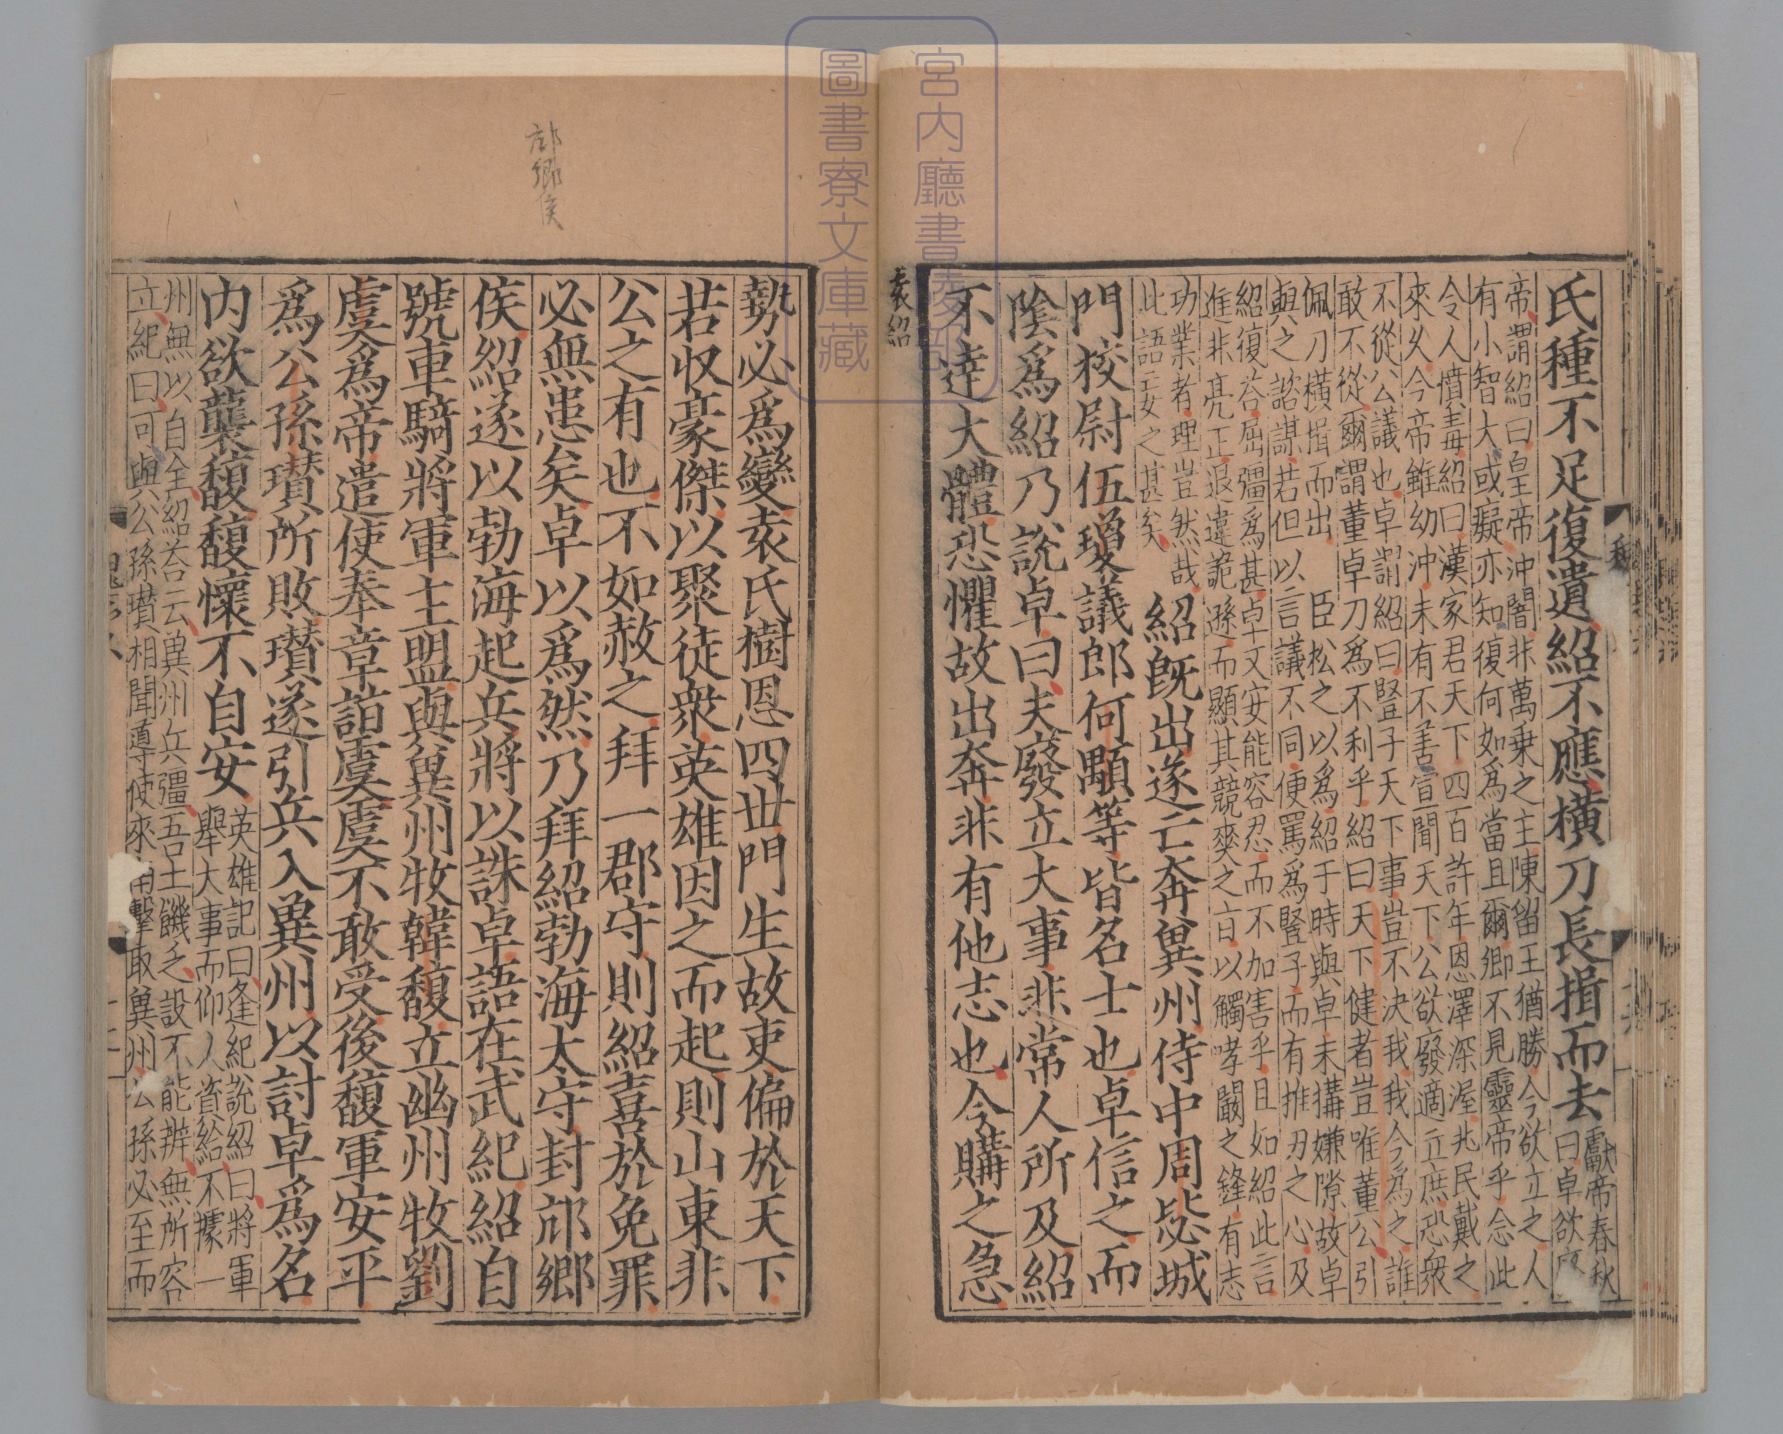 氏種不足復遺紹不應橫刀長揖而去
獻帝春秋
曰卓欲
帝謂紹曰皇帝沖闇非萬乗之主陳留王猶勝今欲立之人
有小智大或癡亦知復何如為當且爾卿不見靈帝乎念此
令人憤毒紹曰漢家君天下四百許年恩澤深渥兆民戴之
來乆今帝雖幼沖未有不善宣聞天下公欲廢適立庶恐衆
不從公議也卓謂紹曰豎子天下事豈不決我我今為之誰
敢不從爾謂董卓刀為不利乎紹曰天下健者豈唯董公引
佩刀橫揖而出 臣松之以為紹于時與卓未搆嫌隙故卓
與之諮謀若但以言議不同便罵為豎子而有推刃之心及
紹復荅屈彊為甚卓又安能容忍而不加害乎且如紹此言
進非亮正退違詭遜而顯其競爽之旨以觸哮闞之鋒有志
功業者理豈然哉
此語妄之甚矣
紹旣出遂亡奔兾州侍中周毖城
門校尉伍瓊議郎何顒等皆名士也卓信之而
隂爲紹乃說卓曰夫廢立大事非常人所及紹
不達大體恐懼故出奔非有他志也今購之急
袁紹
宮内廳書陵部
圖書寮文庫藏
勢必爲變袁氏樹恩四世門生故吏偏於天下
若収豪傑以聚徒衆英雄因之而起則山東非
公之有也不如赦之拜一郡守則紹喜於免罪
必無患矣卓以爲然乃拜紹勃海太守封邟鄉
邟鄉侯
侯紹遂以勃海起兵將以誅卓語在武紀紹自
號車騎將軍主盟與兾州牧韓馥立幽州牧劉
虞爲帝遣使奉章詣虞虞不敢受後馥軍安平
爲公孫瓚所敗瓚遂引兵入兾州以討卓爲名
内欲襲馥馥懷不自安
英雄記曰逢紀說紹曰將軍
舉大事而仰人資給不據一
州無以自全紹荅云兾州兵彊吾士饑乏設不能辦無所容
立紀曰可與公孫瓚相聞導使來南擊取兾州公孫必至而